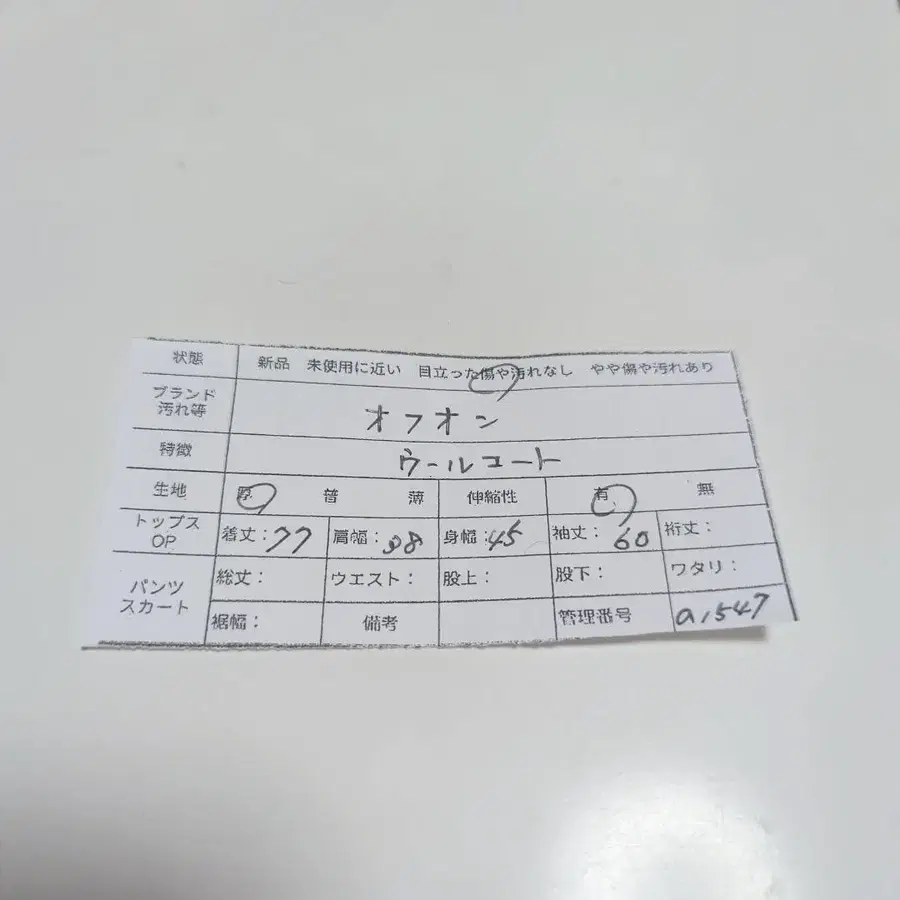 状態 新品 未使用に近い 目立った傷や汚れなし やや傷や汚れあり
ブランド
汚れ等
オフオン
特徴 ウールコート
生地 厚 普 薄 伸縮性 有 無
トップス
OP
着丈：77 肩幅：38 身幅：45 袖丈：60 裄丈：
パンツ
スカート
総丈： ウエスト： 股上： 股下： ワタリ：
裾幅： 備考 管理番号 a1547